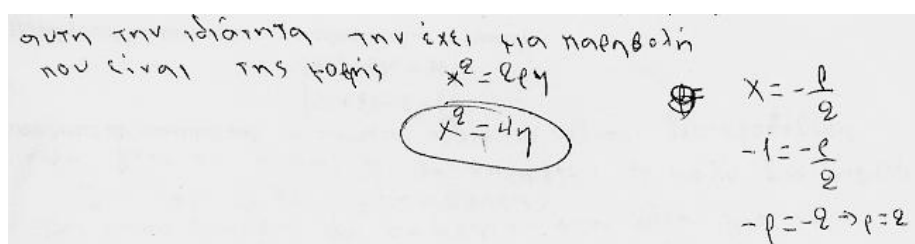 αυτή την ιδιότητα την έχει μια παραβολή
που είναι της μορφής x² = 2ρy
x² = 4y
x = -ρ/2
-1 = -ρ/2
-ρ = -2 → ρ = 2